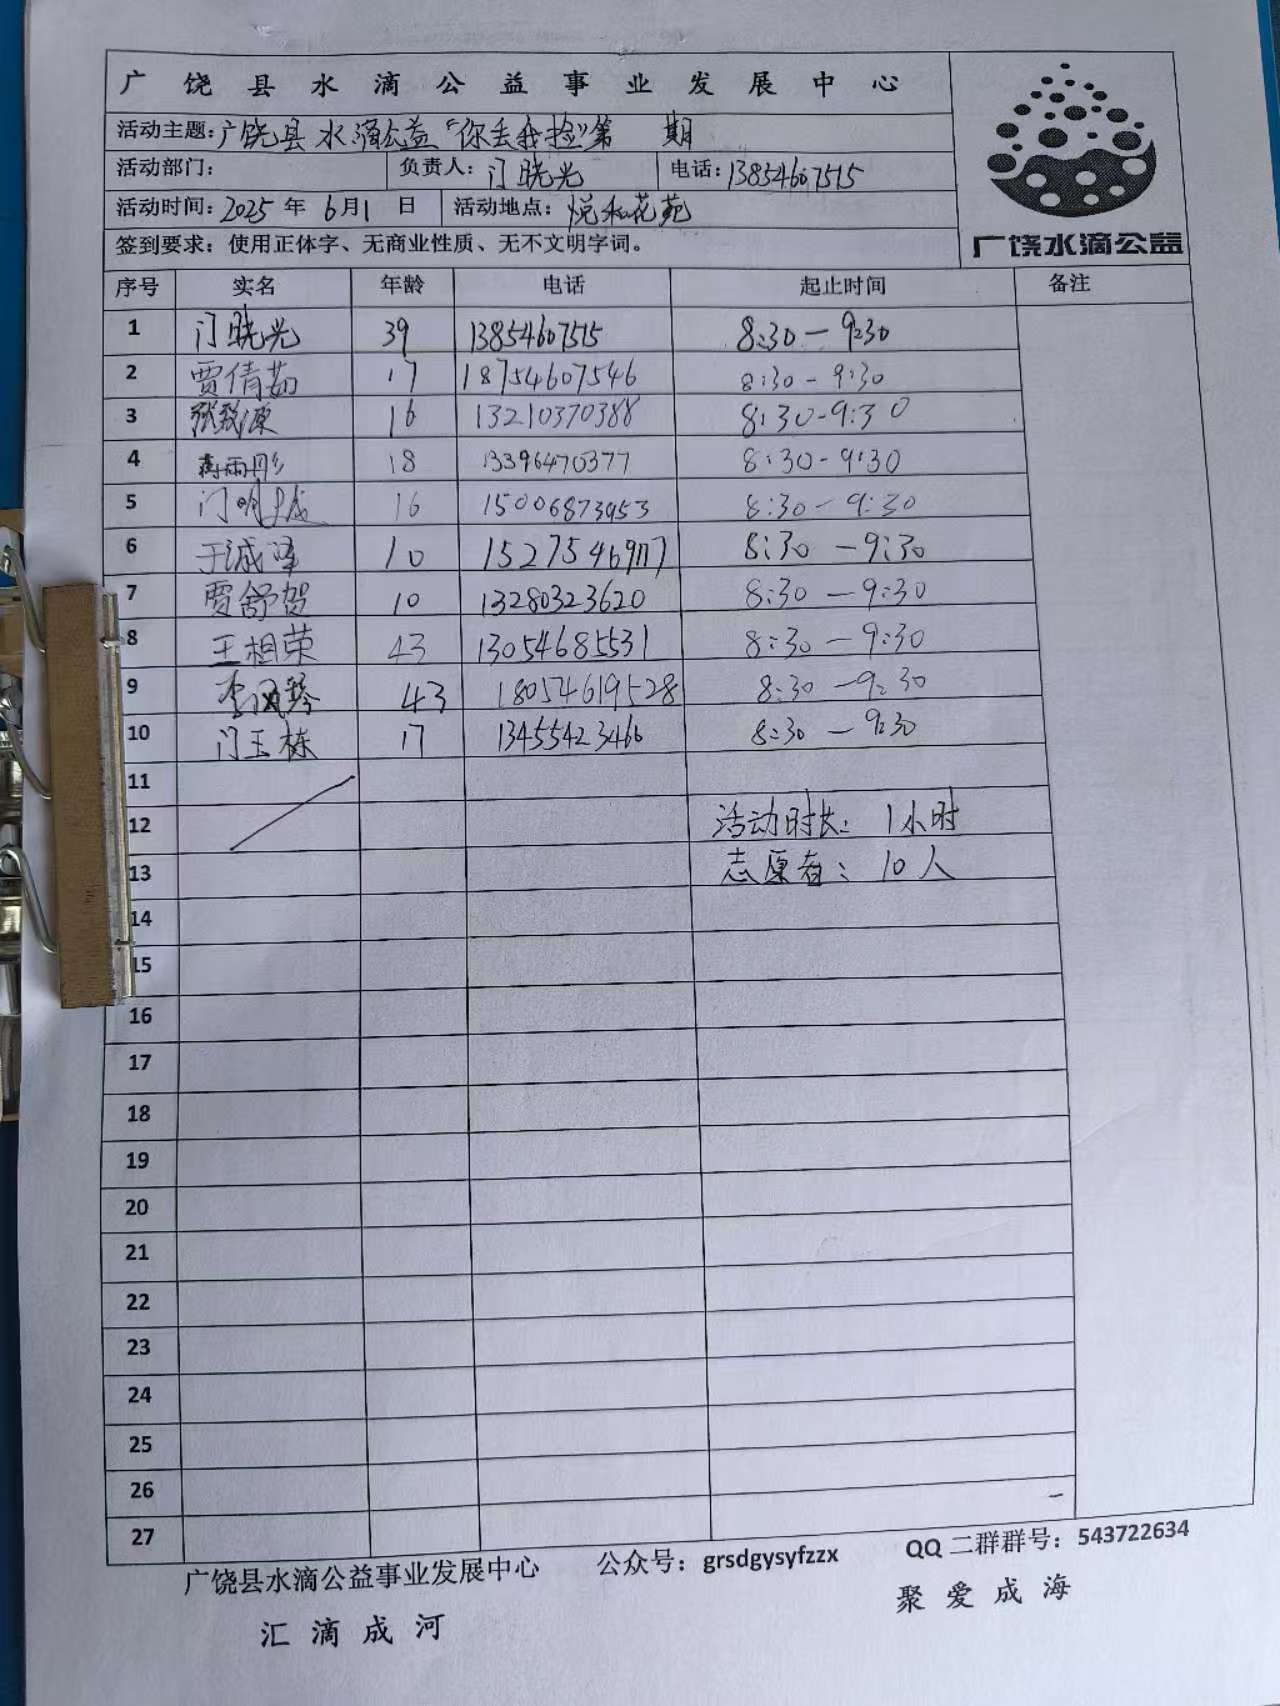 广饶县水滴公益事业发展中心
活动主题：广饶县水滴公益“你丢我捡”第 期
活动部门： 负责人：门晓光 电话：13854607515
活动时间：2025年6月1日 活动地点：悦和花苑
签到要求：使用正体字、无商业性质、无不文明字词。
广饶水滴公益
序号 实名 年龄 电话 起止时间 备注
1 门晓光 39 13854607515 8:30—9:30
2 贾倩茹 17 18754607546 8:30-9:30
3 张致源 16 13210370388 8:30-9:30
4 雨彤 18 13396470377 8:30-9:30
5 门明 16 15006873953 8:30-9:30
6 于诚泽 10 15275469117 8:30—9:30
7 贾舒贺 10 13280323620 8:30—9:30
8 王相荣 43 13054685531 8:30—9:30
9 李风琴 43 18054619528 8:30—9:30
10 门玉栋 17 13455423466 8:30—9:30
11
12 活动时长：1小时
13 志愿者：10人
14
15
16
17
18
19
20
21
22
23
24
25
26
27
广饶县水滴公益事业发展中心 公众号：grsdgysyfzzx QQ二群群号：543722634
汇滴成河 聚爱成海